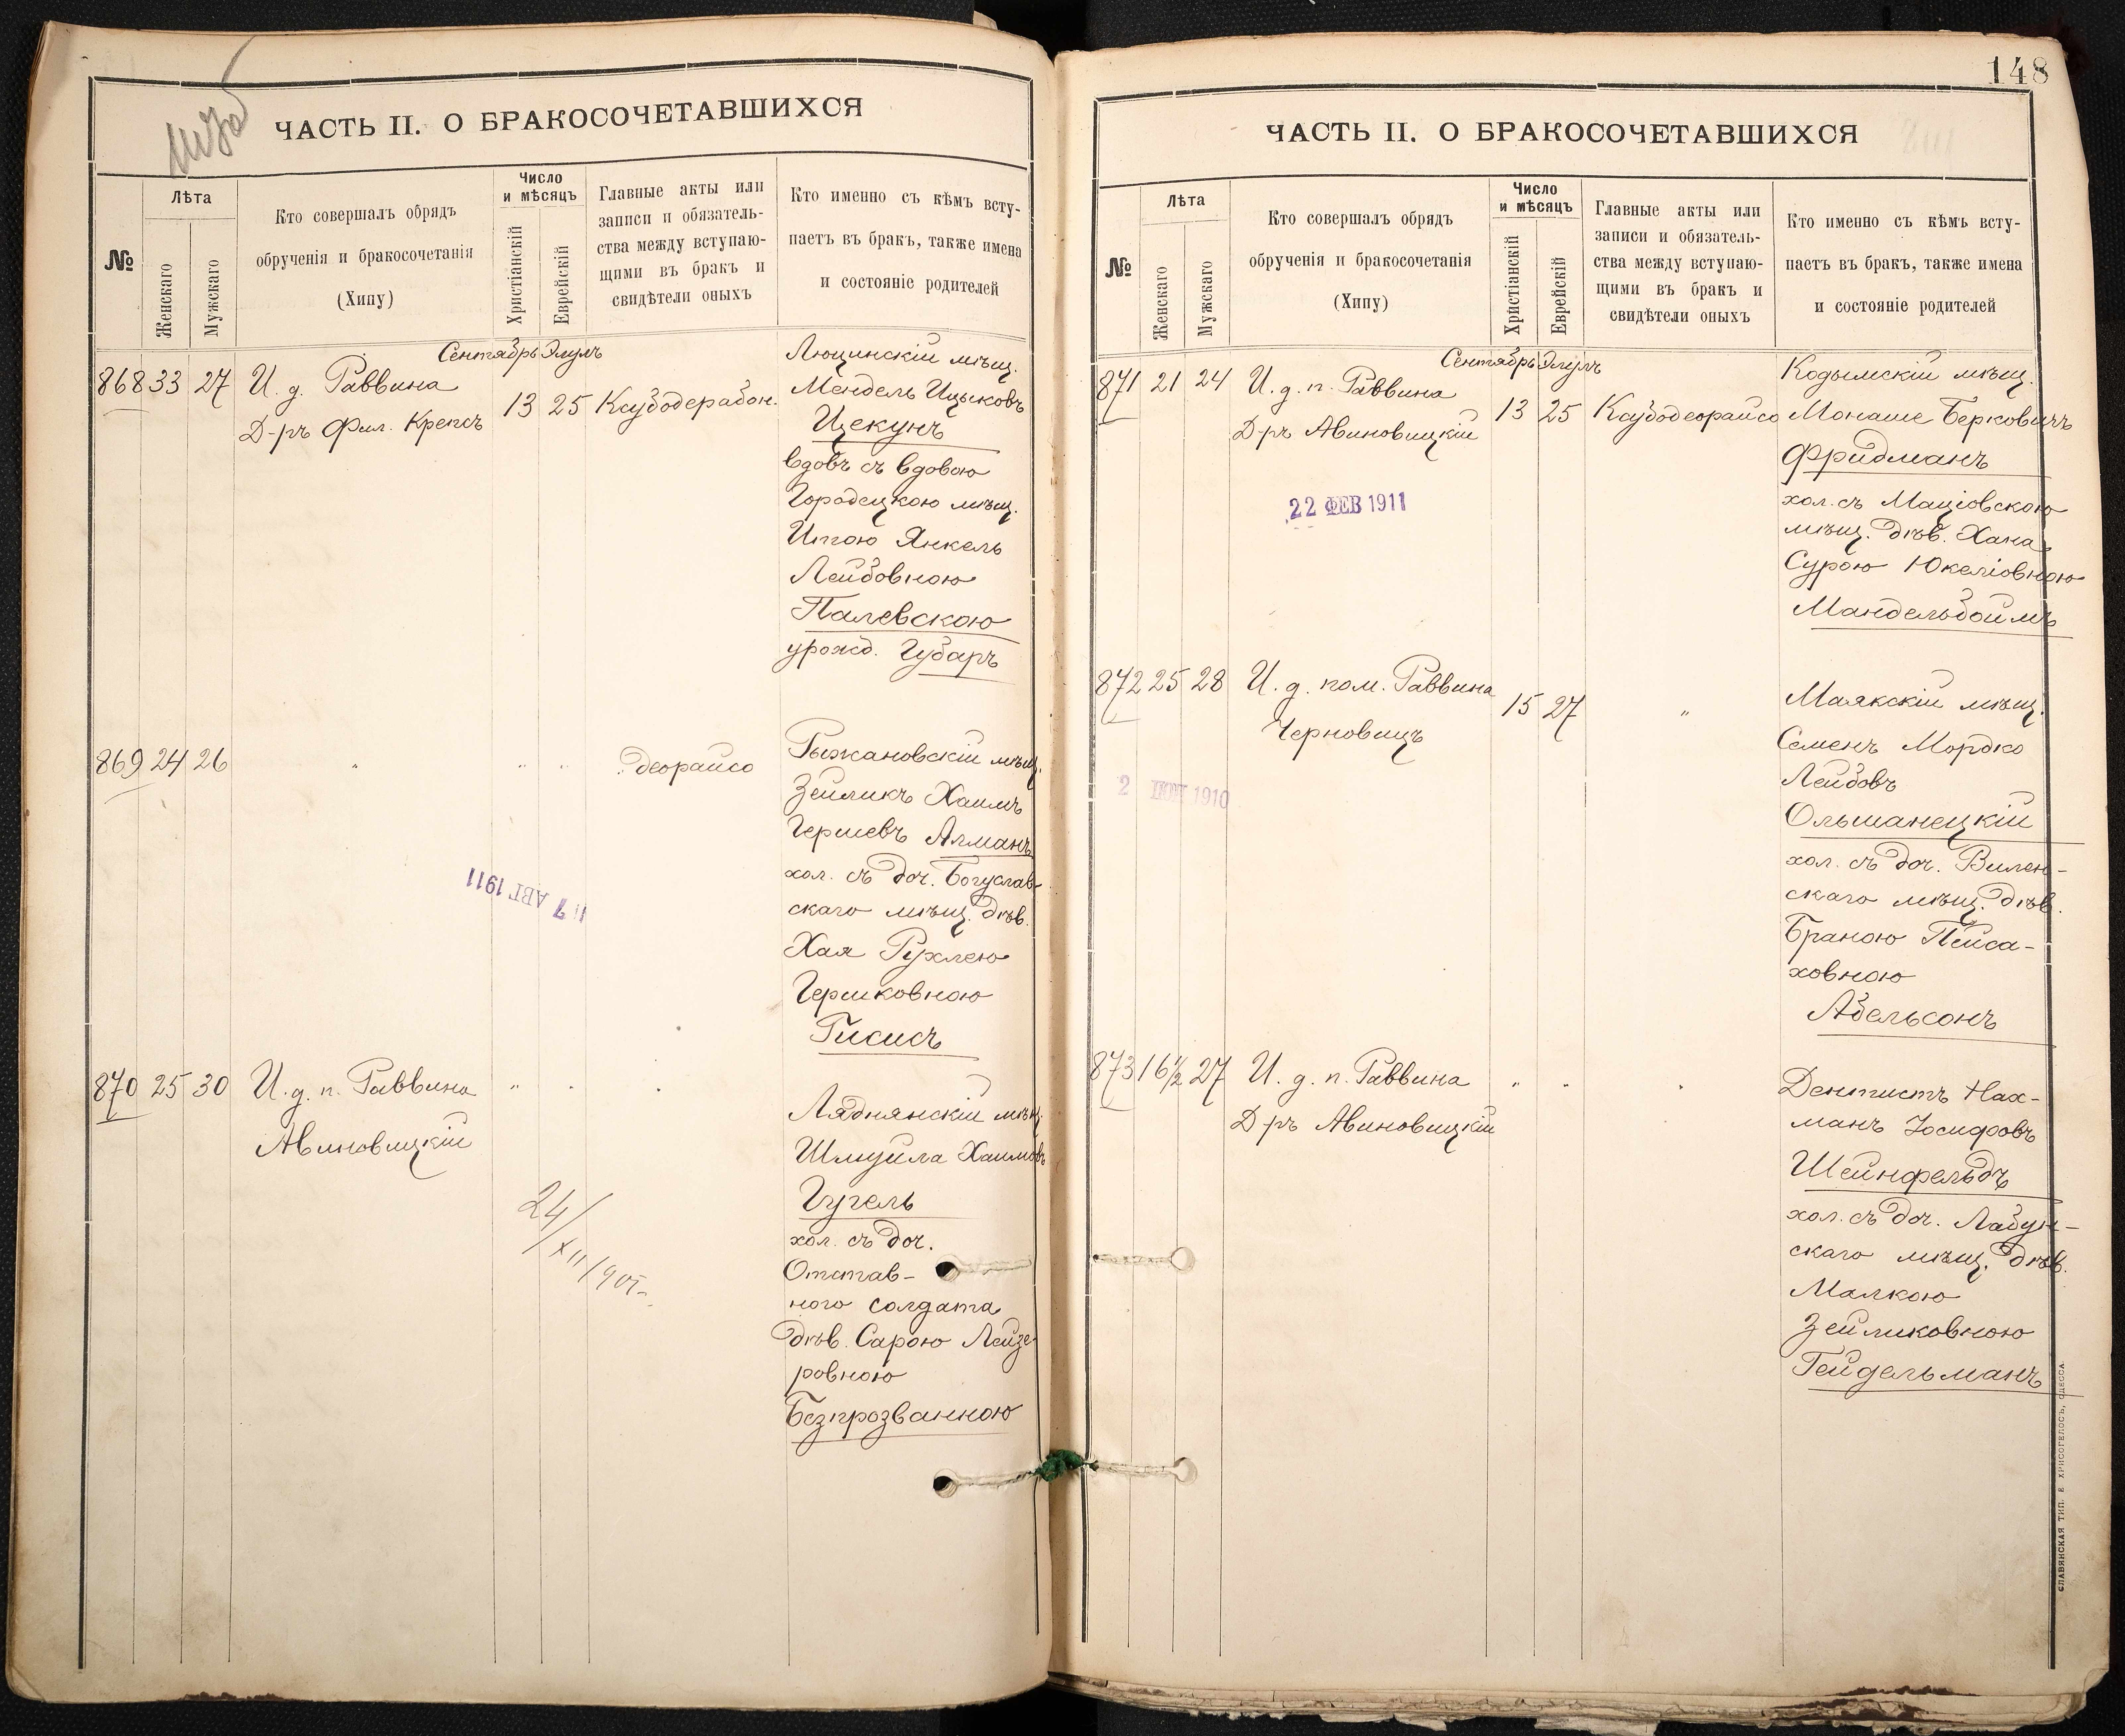 ЧАСТЬ II. О БРАКОСОЧЕТАВШИХСЯ
№
Лѣта
Женскаго
Мужскаго
Кто совершалъ обрядъ
обрученія и бракосочетанія
(Хипу)
Число
и мѣсяцъ
Христіанскій
Еврейскій
Главные акты или
записи и обязатель-
ства между вступаю-
щими въ бракъ и
свидѣтели оныхъ
Кто именно съ кѣмъ всту-
паетъ въ бракъ, также имена
и состояніе родителей
Сентябрь Элулъ
868 33 27 И. д. Раввина
Д-ръ Фил. Крепсъ
13 25 Ксубодерабон.
Люцинскій мѣщ.
Мендель Ицыковъ
Цекунъ
вдовъ съ вдовою
Городецкою мѣщ.
Итою Янкель
Лейбовною
Палевскою
урожд. Губаръ
869 24 26 " " " деорайсо
Рыжановскій мѣщ.
Зейликъ Хаимъ
Гершевъ Алманъ
хол. съ доч. Богуслав-
скаго мѣщ. дѣв.
Хая Рухлею
Гершковною
Гисисъ
17 АВГ 1911
870 25 30 И. д. п. Раввина
Авиновицкій
" " "
Ляднянскій мѣщ.
Шмуйла Хаимовъ
Гугель
хол. съ доч.
Отстав-
ного солдата
дѣв. Сарою Лейзе-
ровною
Безпрозванною
24/XII/905
148
ЧАСТЬ II. О БРАКОСОЧЕТАВШИХСЯ
№
Лѣта
Женскаго
Мужскаго
Кто совершалъ обрядъ
обрученія и бракосочетанія
(Хипу)
Число
и мѣсяцъ
Христіанскій
Еврейскій
Главные акты или
записи и обязатель-
ства между вступаю-
щими въ бракъ и
свидѣтели оныхъ
Кто именно съ кѣмъ всту-
паетъ въ бракъ, также имена
и состояніе родителей
Сентябрь Элулъ
871 21 24 И. д. п. Раввина
Д-ръ Авиновицкій
13 25 Ксубодеорайсо
22 ФЕВ 1911
Кодымскій мѣщ.
Монаше Берковичъ
Фридманъ
хол. съ Маціовскою
мѣщ. дѣв. Хана
Сурою Юкеліовною
Мандельбоймъ
872 25 28 И. д. пом. Раввина
Черновицъ
15 27 "
2 1910
Маякскій мѣщ.
Семенъ Мордко
Лейбовъ
Ольшанецкій
хол. съ доч. Вилен-
скаго мѣщ. дѣв.
Браною Пейса-
ховною
Абельсонъ
873 16½ 27 И. д. п. Раввина
Д-ръ Авиновицкій
" " "
Дентистъ Нах-
манъ Іосифовъ
Шейнфельдъ
хол. съ доч. Лабун-
скаго мѣщ. дѣв.
Малкою
Зейликовною
Гейдельманъ
СЛАВЯНСКАЯ ТИП. Е. ХРИСОГЕЛОСЪ, ОДЕССА.